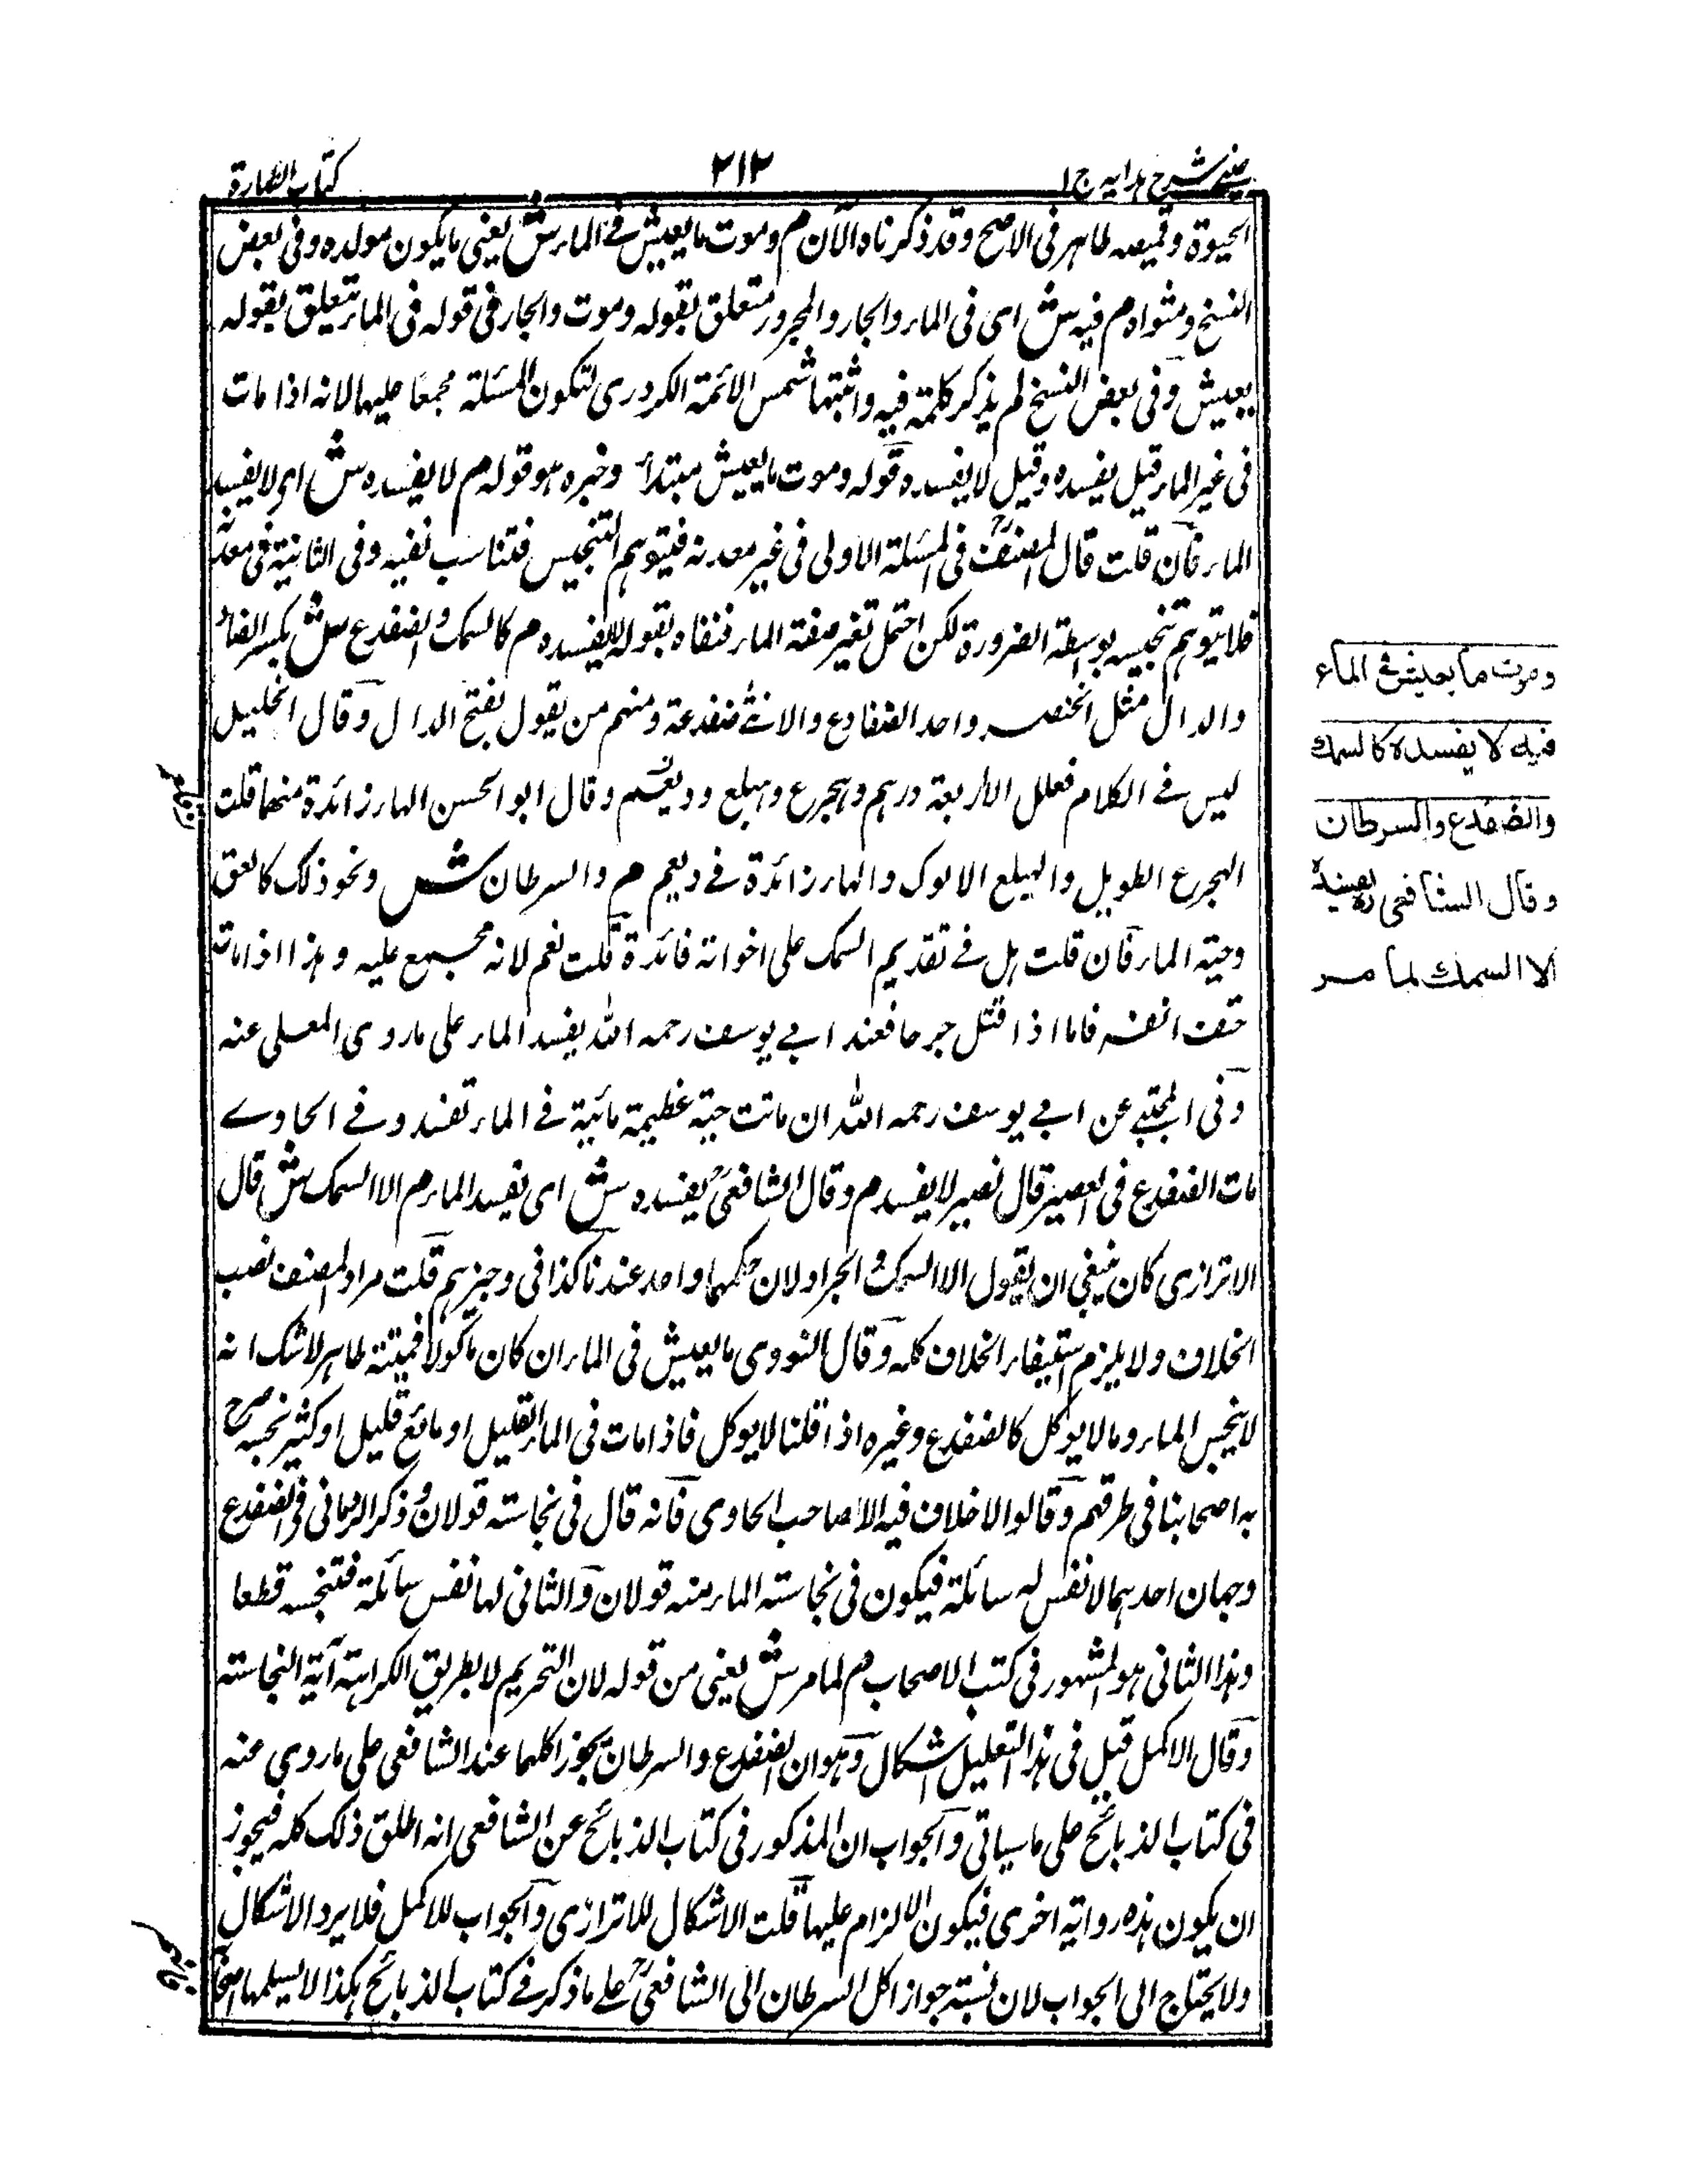 عينى شرح هدايه ج ١
٢١٢
كتاب الطهارة
الحيوة وقميصه طاهر فى الاصح وقد ذكرناه الآن م وموت ما يعيش فى الماء ش يعنى ما يكون مولده وفى بعض
النسخ ومثواه م فيه ش اى فى الماء والجار والمجرور متعلق بقوله وموت والجار فى قوله فى الماء يتعلق بقوله
يعيش وفى بعض النسخ لم يذكر كلمة فيه واثبتها شمس الائمة الكردرى لتكون المسئلة مجمعا عليها لانه اذا مات
فى غير الماء قيل يفسده وقيل لا يفسده وقوله وموت ما يعيش مبتدأ وخبره هو قوله م لا يفسده ش اى لا يفسد
الماء فان قلت قال المصنف رح فى المسئلة الاولى فى غير معدنه فيتوهم التنجيس فتناسب نفيه وفى الثانية فى معدنه
فلا يتوهم تنجيسه بوسطة الضرورة لكن احتمل تغير صفة الماء فنفاه بقوله لا يفسده م كالسمك والضفدع ش بكسر الضاد
والدال مثل الخنصر واحد الضفادع والانثى ضفدعة ومنهم من يقول بفتح الدال وقال الخليل
ليس فى الكلام فعلل الا اربعة درهم وهجرع وهبلع وديعم وقال ابو الحسن الهاء زائدة منهما قلت
الهجرع الطويل والهبلع الاكول والهاء زائدة فى ديعم م والسرطان ش ونحو ذلك كالعلق
وحية الماء فان قلت هل فى تقديم السمك على اخواته فائدة قلت نعم لانه مجمع عليه وهذا اذا مات
حتف انفه فاما اذا قتل جرحا فعند ابى يوسف رحمه الله يفسد الماء على ما روى المعلى عنه
وفى المجتبى عن ابى يوسف رحمه الله ان ماتت حية عظيمة مائية فى الماء تفسد وفى الحاوى
مات الضفدع فى العصير قال نصير لا يفسد م وقال الشافعى رح يفسده ش اى يفسد الماء م الا السمك ش قال
الاترازى كان ينبغى ان يقول الا السمك والجراد لان حكمهما واحد عندنا كذا فى وجيزهم قلت مراد المصنف نصب
الخلاف ولا يلزم استيفاء الخلاف كله وقال النووى ما يعيش فى الماء ان كان ماكولا فميتته طاهر لا شك انه
لا ينجس الماء وما لا يوكل كالضفدع وغيره اذا قلنا لا يوكل فاذا مات فى الماء القليل او مائع قليل او كثير نجسه صرح
به اصحابنا فى طرقهم وقالوا لا خلاف فيه الا صاحب الحاوى فانه قال فى نجاسته قولان وذكر الرويانى فى الضفدع
وجهان احدهما لا نفس له سائلة فيكون فى نجاسته الماء منه قولان والثانى لها نفس سائلة فتنجسه قطعا
وهذا الثانى هو المشهور فى كتب الاصحاب م لما مر ش يعنى من قوله لان التحريم لا بطريق الكراهة آية النجاسته
وقال الاكمل قيل فى هذا التعليل اشكال وهو ان الضفدع والسرطان يجوز اكلهما عند الشافعى على ما روى عنه
فى كتاب الذبائح على ما سياتى والجواب ان المذكور فى كتاب الذبائح عن الشافعى انه اطلق ذلك كله فيجوز
ان يكون هذه رواية اخرى فيكون الالزام عليها قلت الاشكال للاترازى والجواب للاكمل فلا يرد الاشكال
ولا يحتاج الى الجواب لان نسبة جواز اكل السرطان الى الشافعى رح على ما ذكر فى كتاب الذبائح هكذا لا يسلمها
وموت ما يعيش فى الماء
فيه لا يفسده كالسمك
والضفدع والسرطان
وقال الشافعى ره يفسده
الا السمك لما مر